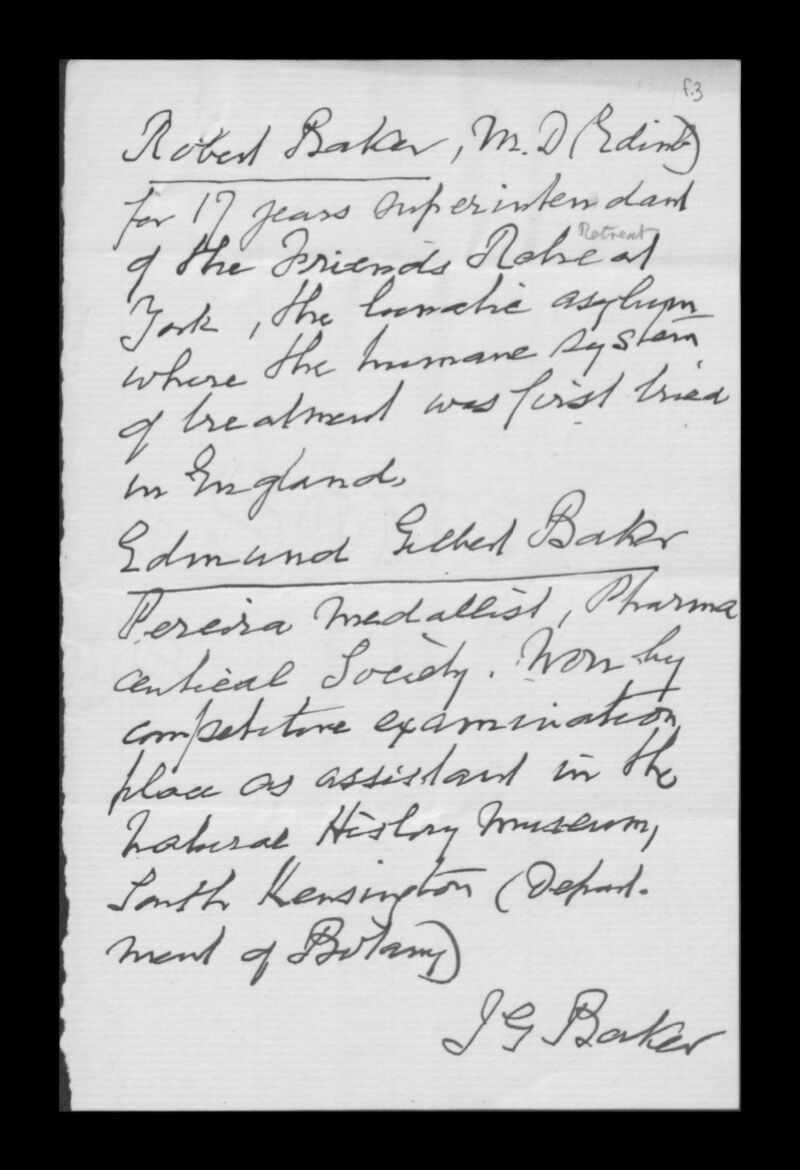 f.3
Robert Baker, M.D (Edinb)
for 17 years superintendant
Retreat
of the Friends Retreat
York, the lunatic asylum
where the humane system
of treatment was first tried
in England.
Edmund Gilbert Baker
Pereira medallist, Pharma
ceutical Society. Won by
competitive examination
place as assistant in the
Natural History Museum,
South Kensington (Depart-
ment of Botany)
J G Baker